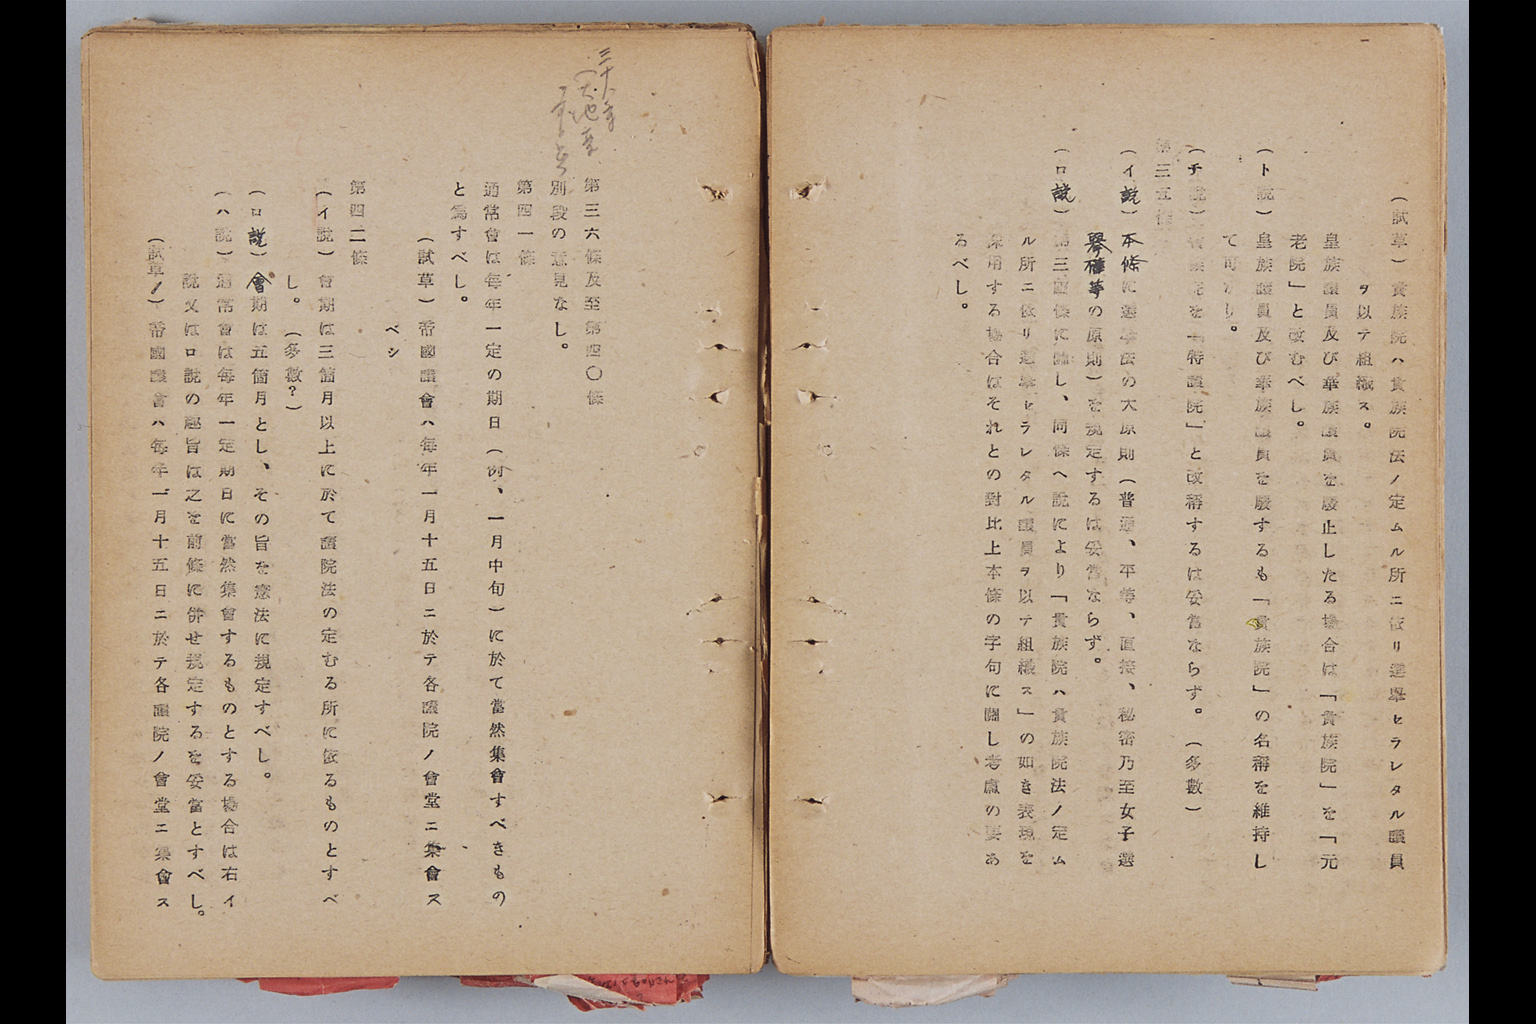 (試草)貴族院ハ貴族院法ノ定ムル所ニ依リ選擧セラレタル議員
ヲ以テ組織ス。
皇族議員及び華族議員を廢止したる場合は「貴族院」を「元
老院」と改むべし。
(ト說)皇族議員及び華族議員を廢するも「貴族院」の名稱を維持し
て可なり。
(チ說)貴族院を「特議院」と改稱するは妥當ならず。(多數)
第三五條
(イ說)本條に選擧法の大原則(普通、平等、直接、秘密乃至女子選
擧權等の原則)を規定するは妥當ならず。
(ロ說)第三四條に關し、同條ヘ說により「貴族院ハ貴族院法ノ定ム
ル所ニ依リ選擧セラレタル議員ヲ以テ組織ス」の如き表現を
採用する場合はそれとの對比上本條の字句に關し考慮の要あ
るべし。
三十八
第三六條及至第四〇條
別段の意見なし。
第四一條
通常會は每年一定の期日(例、一月中旬)に於て當然集會すべきもの
と爲すべし。
(試草)帝國議會ハ每年一月十五日ニ於テ各議院ノ會堂ニ集會ス
ベシ
第四二條
(イ說)會期は三箇月以上に於て議院法の定むる所に依るものとすべ
し。(多數?)
(ロ說)會期は五箇月とし、その旨を憲法に規定すべし。
(ハ說)通常會は每年一定期日に當然集會するものとする場合は右イ
說又はロ說の趣旨は之を前條に併せ規定するを妥當とすべし。
(試草)帝國議會ハ每年一月十五日ニ於テ各議院ノ會堂ニ集會ス